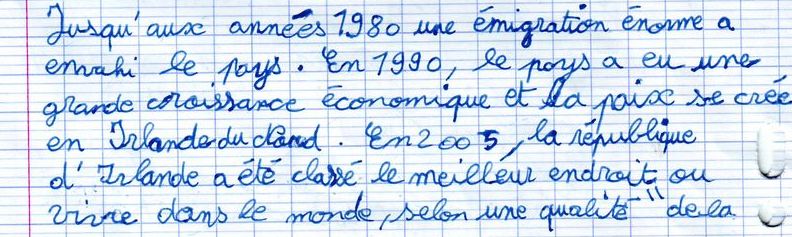 Jusqu'aux années 1980 une émigration énorme a
envahi le pays. En 1990, le pays a eu une
grande croissance économique et la paix se crée
en Irlande du . En 2005, la république
d'Irlande a été classé le meilleur endroit ou
vivre dans le monde, selon une qualité " de la